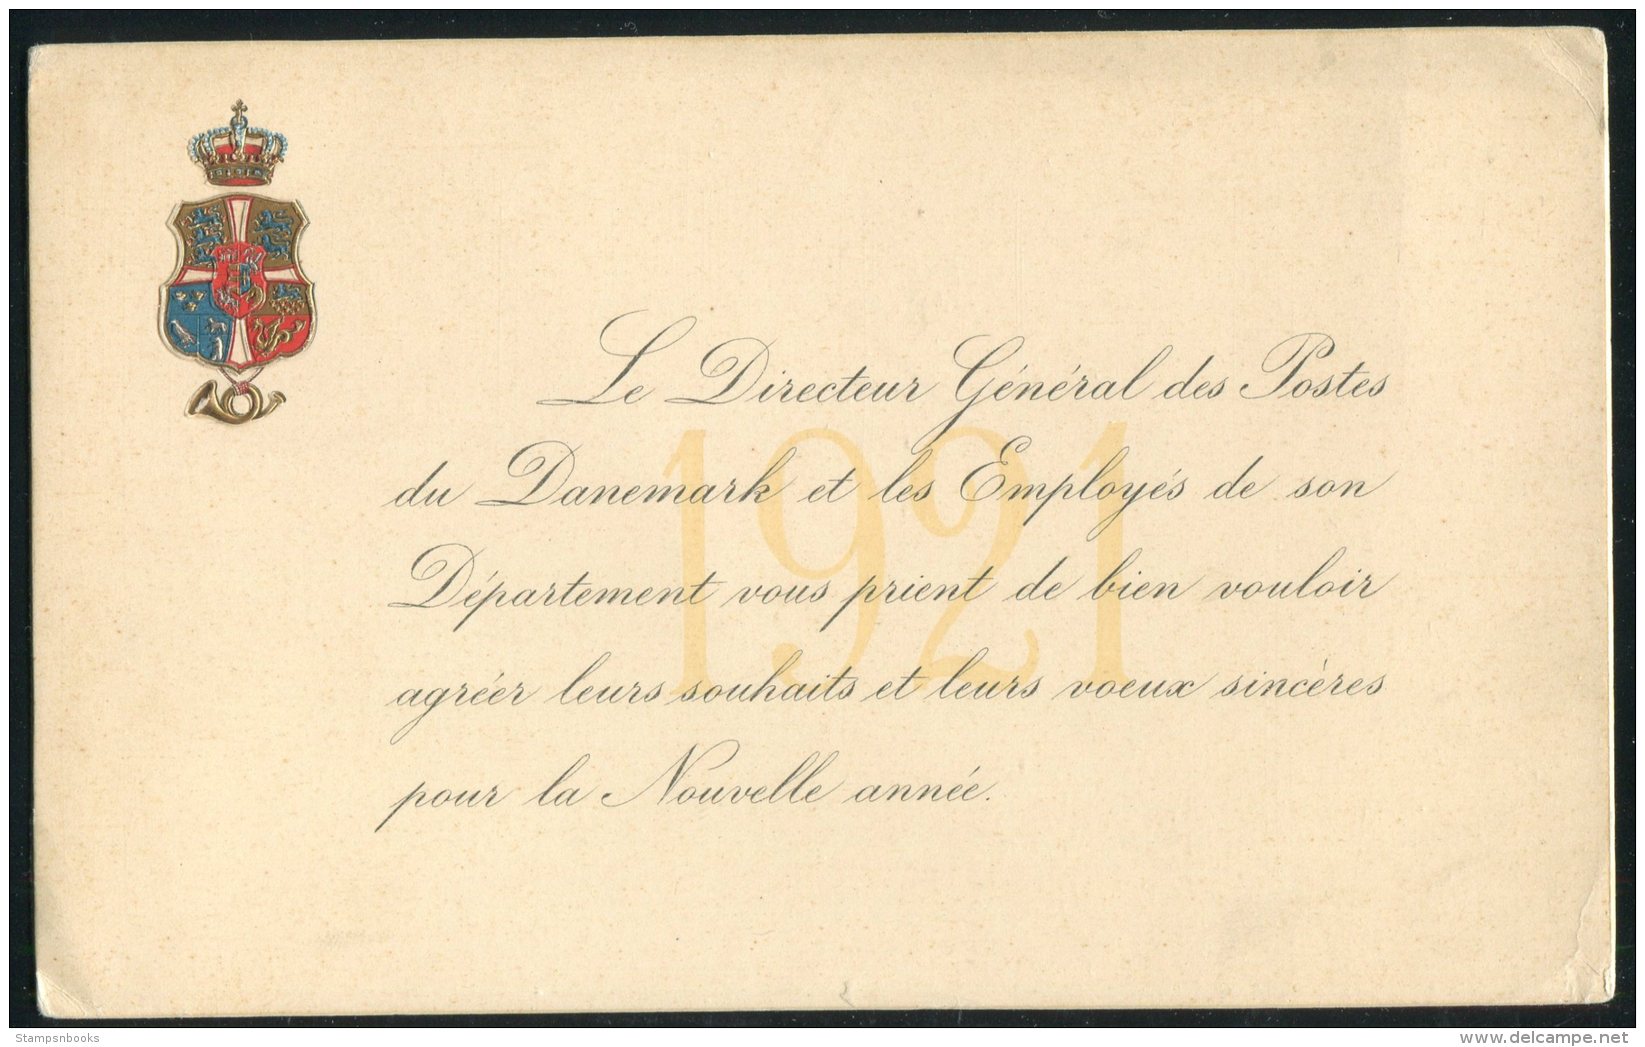 Le Directeur Général des Postes
du Danemark et les Employés de son
Département vous prient de bien vouloir
agréer leurs souhaits et leurs voeux sincères
pour la Nouvelle année.
1921
Stampsnbooks
www.delcampe.net